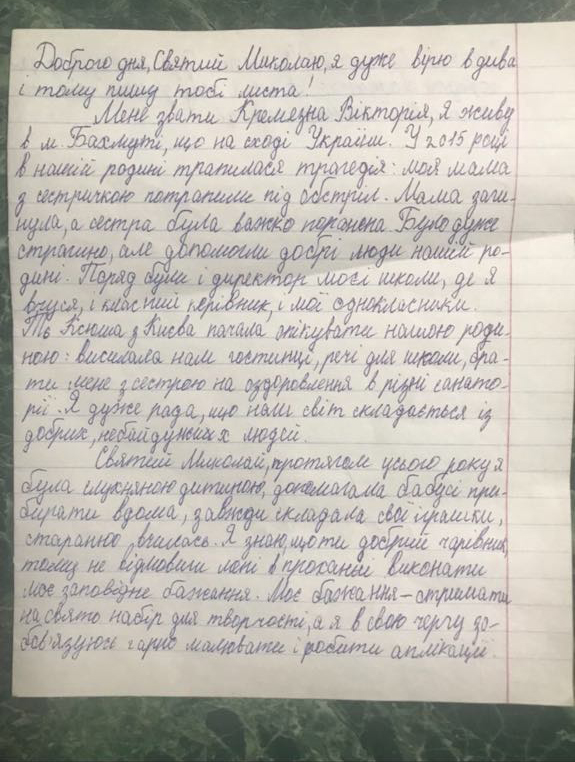 Доброго дня, Святий Миколаю, я дуже вірю в дива
і тому пишу тобі листа!
Мене звати Кремезна Вікторія, я живу
в м. Бахмуті, що на сході України. У 2015 році
в нашій родині трапилася трагедія: моя мама
з сестричкою потрапили під обстріл. Мама заги-
нула, а сестра була важко поранена. Було дуже
страшно, але допомогли добрі люди нашій ро-
дині. Поряд були і директор моєї школи, де я
вчуся, і класний керівник, і мої однокласники.
Тьо Ксюша з Києва почала опікувати нашою роди-
ною: висилала нам гостинці, речі для школи, бра-
ти мене з сестрою на оздоровлення в різні санато-
рії. Я дуже рада, що наш світ складається із
добрих, небайдужих людей.
Святий Миколай, протягом усього року я
була слухняною дитиною, допомагала бабусі при-
бирати вдома, завжди складала свої іграшки,
старанно вчилась. Я знаю, що ти добрий чарівник,
тому не відмовиш мені в проханні виконати
моє заповідне бажання. Моє бажання – отримати
на свято набір для творчості, а я в свою чергу зо-
бов'язуюсь гарно малювати і робити аплікації.